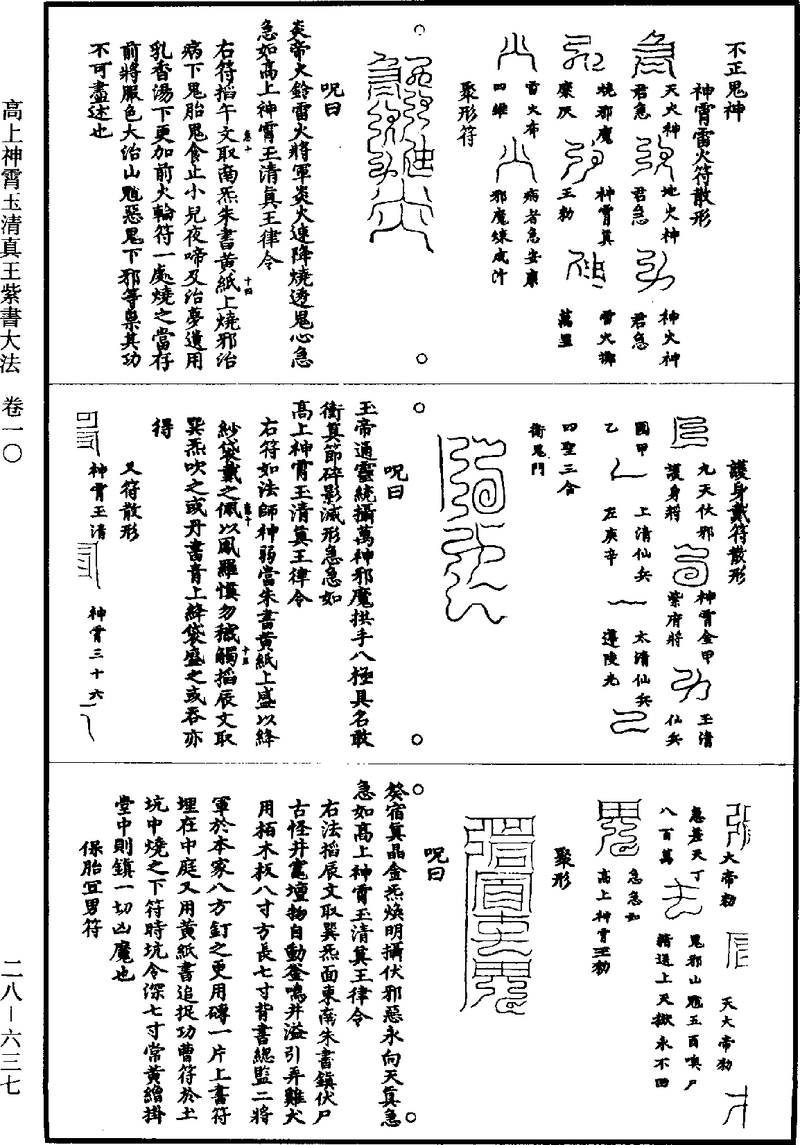 高上神霄玉清真王紫書大法　卷一〇
二八—六三七
不正鬼神
神霄雷火符散形
天火神君急
地火神君急
神火神君急
燒邪魔
糜灰
神霄真王勑
雷火擲萬里
雷火布四維
病者急安康
邪魔煉成汁
聚形符
呪曰
炎帝火鈴雷火將軍炎火速降燒透鬼心急
急如高上神霄王清真王律令
右符掐午文取南炁朱書黃紙上燒邪治
病下鬼胎鬼食止小兒夜啼及治夢遺用
乳香湯下更加前火輪符一處燒之當存
前將服色大治山魈惡鬼下邪等祟其功
不可盡述也
護身戴符散形
九天伏邪護身將
神霄金甲紫府將
玉清仙兵
國甲乙
上清仙兵左庚辛
太清仙兵遣陵光
四聖三合
衛鬼門
呪曰
玉帝通靈統攝萬神邪魔拱手八極具名敢
衝真節碎影滅形急急如
高上神霄王清真王律令
右符如法師神弱當朱書黃紙上盛以絳
紗袋戴之佩以鳳羅慎勿穢觸掐辰文取
巽炁吹之或丹書青上絳袋盛之或吞亦
得
又符散形
神霄王清
神霄三十六
大帝勑
天大帝勑
急差天丁八百萬
鬼邪山魈五酉喚尸
籍送上天獄永不回
急急如
高上神霄王勑
聚形
呪曰
癸宿真晶金炁煥明攝伏邪惡永向天真急
急如高上神霄玉清真王律令
右法掐辰文取巽炁面東南朱書鎮伏尸
古怪井竈壇物自動釜鳴井溢引弄雞犬
用栢木板八寸方長七寸背書總監二將
軍於本家八方釘之更用磚一片上書符
埋在中庭又用黃紙書追捉功曹符於土
坑中燒之下符時坑令深七寸常黃繒掛
堂中則鎮一切凶魔也
保胎宜男符